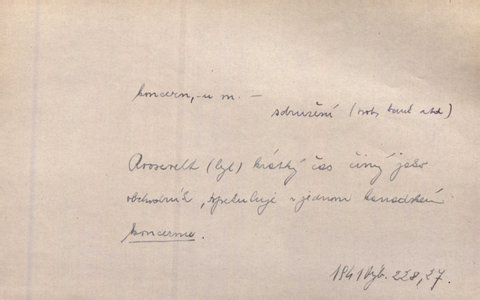 koncern, -u m. –
sdružení (prům. bank atd.)
Roosevelt (byl) krátký čas činný jako
obchodník, spekuluje v jednom kanadském
koncernu.
1941 Výb. 228, 27.